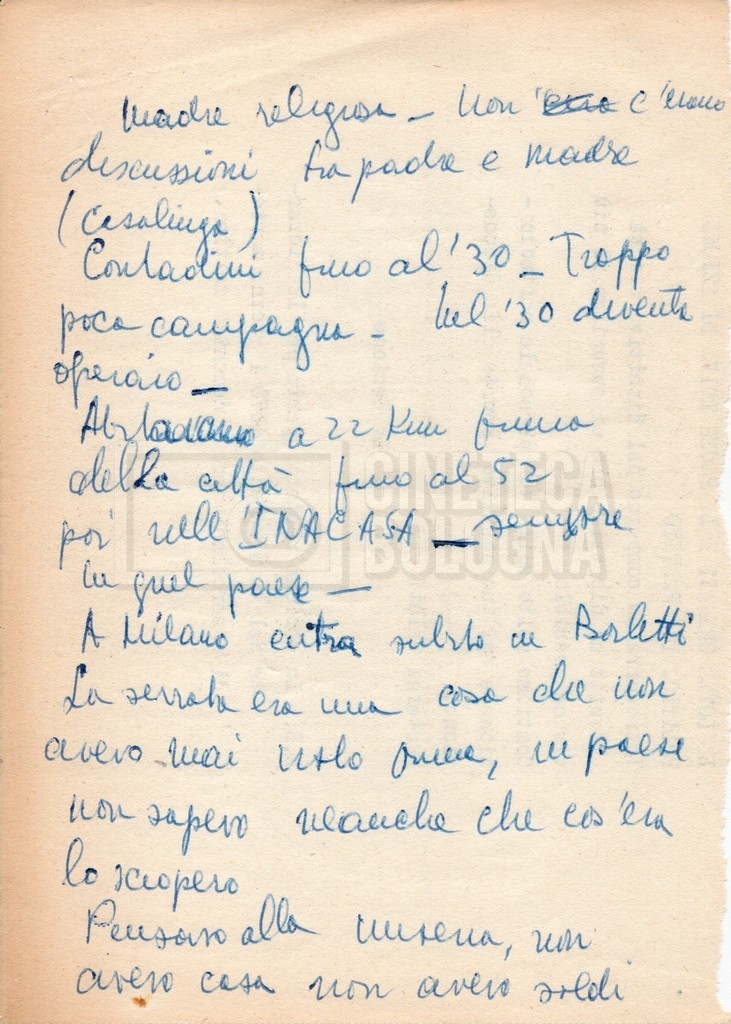 madre religiosa – Non era c'erano
discussioni tra padre e madre
(casalinga)
Contadini fino al '30 – Troppo
poca campagna – Nel '30 diventa
operaio –
Abitavano a 22 Km prima
della città fino al 52
poi nell'INACASA – sempre
in quel paese –
A Milano entra subito in Borletti
La serrata era una cosa che non
avevo mai visto prima, in paese
non sapevo neanche che cos'era
lo sciopero
Pensavo alla miseria, non
avevo casa non avevo soldi
CINETECA
BOLOGNA